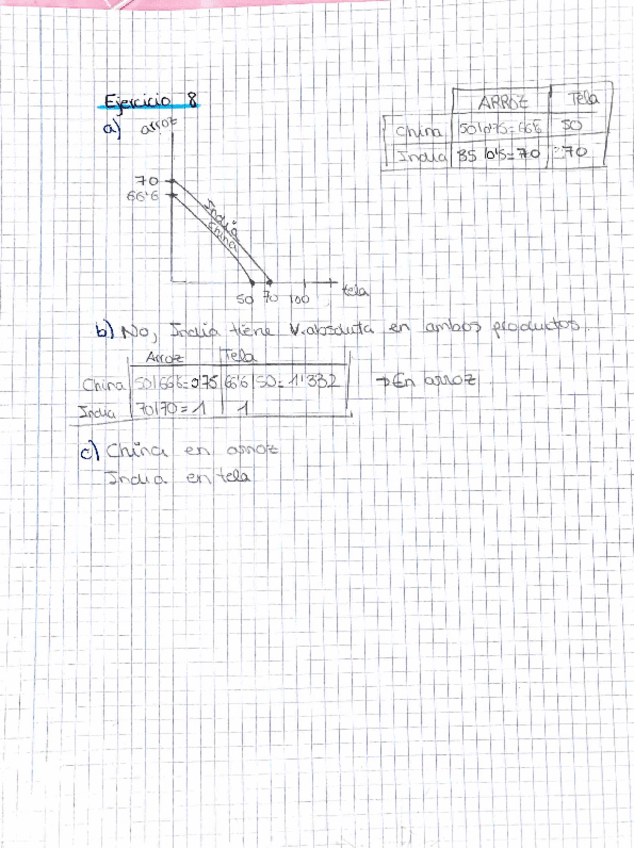 Ejercicio 8
a) arroz
ARROZ Tela
China 50/0'75=66'6 50
India 35/0'5=70 70
70
66'6
India
China
50 70 100 tela
b) No, India tiene V.absoluta en ambos productos.
Arroz Tela
China 50/66'6=0'75 66'6/50=1'332 →En arroz
India 70/70=1 1
c) China en arroz
India en tela